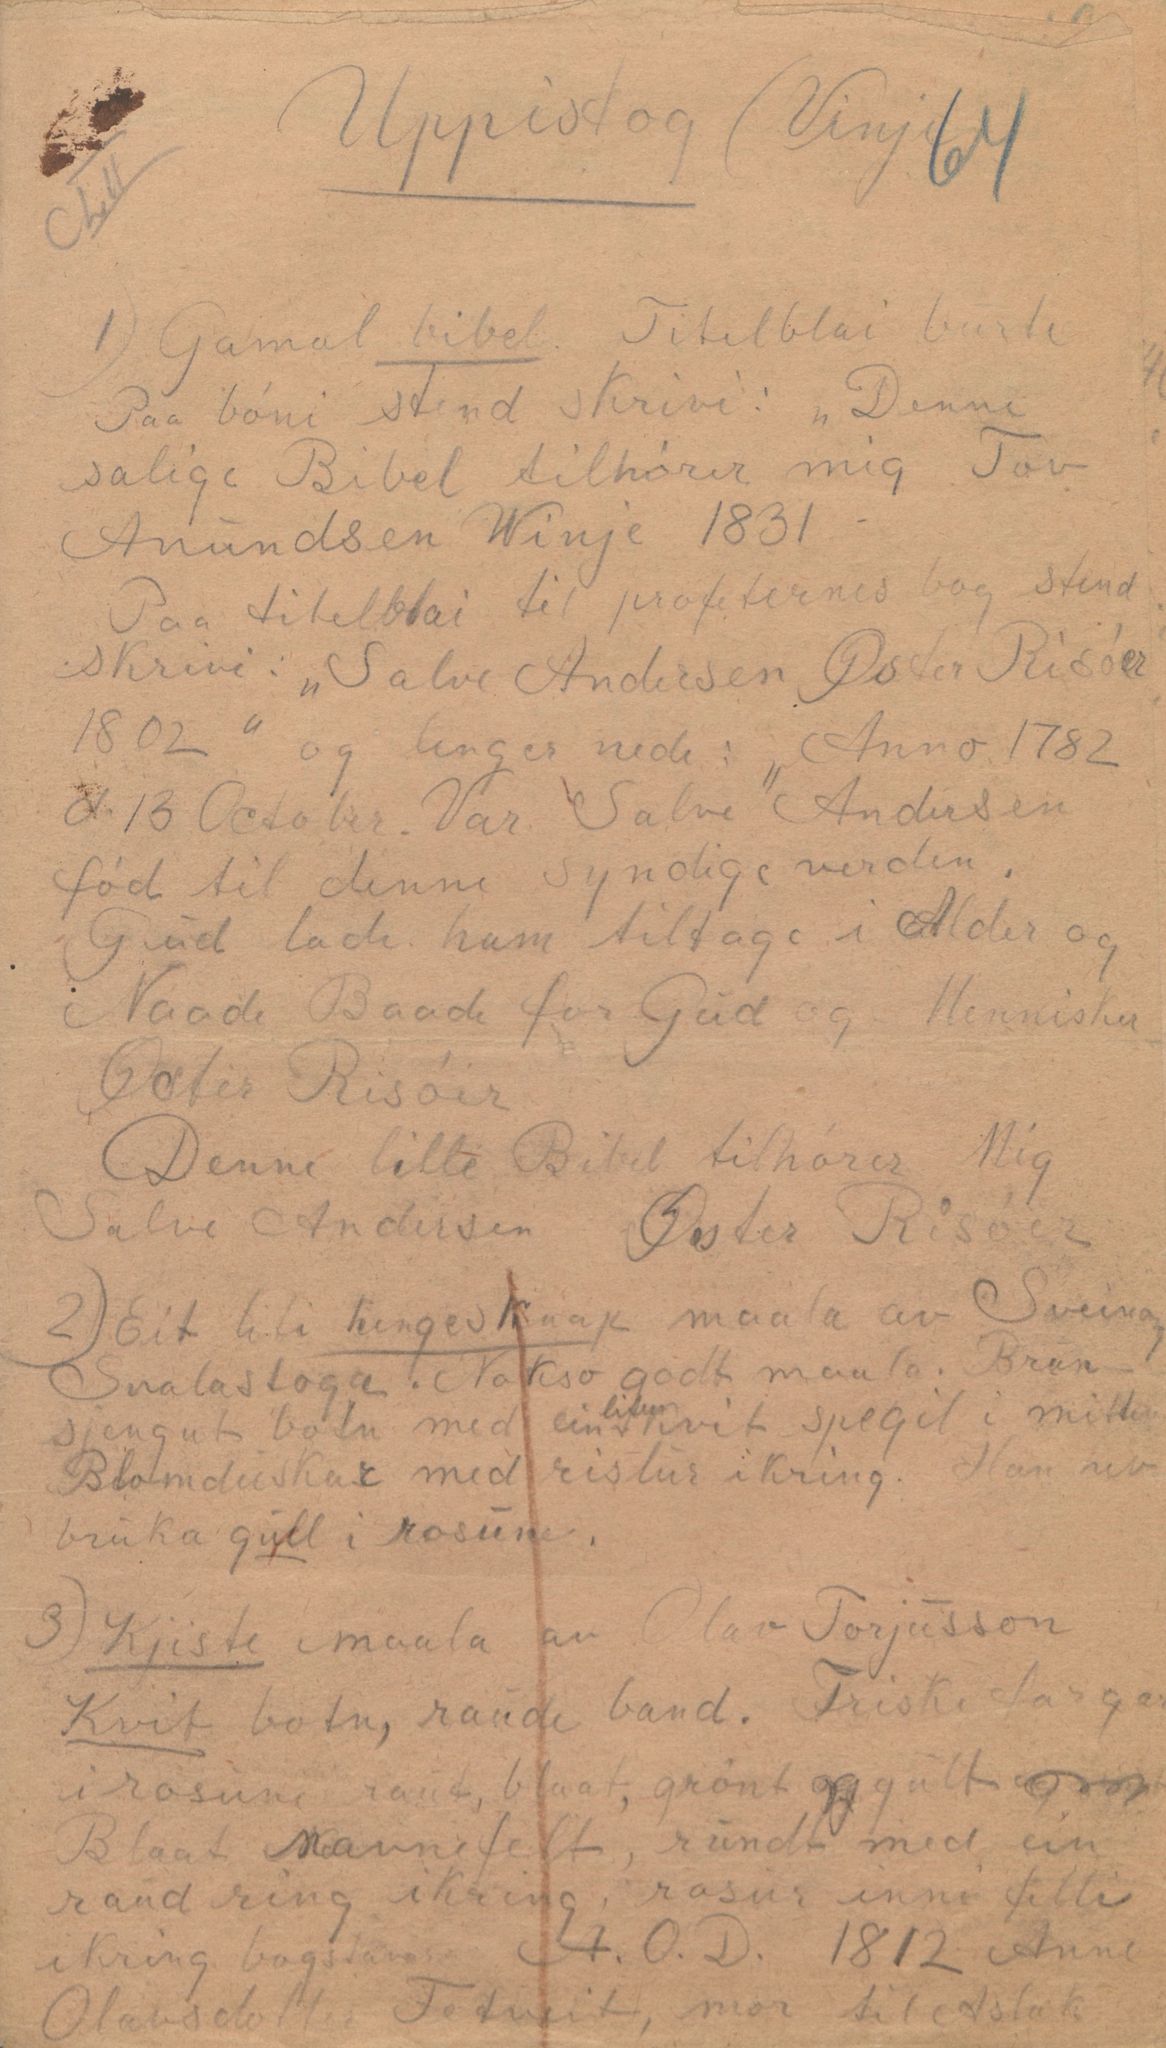 Uppistog (Vinje 64
1) Gamal bibel. Titelblai burte
Paa bóni stend skrivi: „Denne
salige Bibel tilhórer mig Tov
Anŭndsen Winje 1831
Paa titelblai til profeternes bog stend
skrivi: „Salve Andersen Øster Risóer
1802“ og lenger nede: „Anno 1782
d. 13 October. Var Salve Andersen
fód til denne syndige verden.
Gŭd lade ham tiltage i Alder og
i Naade Baade for Gŭd og Mennisker
Øster Risóer
Denne lille Bibel tilhórer Mig
Salve Andersen Øster Risóer
2) Eit liti hengeskaap maala av Sveinung
Svalastoga. Nokso godt maala. Brŭn
sjengut botn med ein liten kvit spegil i mitten
Blomdŭskar med ristŭr ikring. Han hev
brŭka gŭll i rosŭne.
3) Kjiste maala av Olav Torjŭsson
Kvit botn, raŭde band. Friske fargar
i rosŭne raŭt, blaat, grónt og gŭlt
Blaat Navnefelt, rŭndt med ein
raŭd ring ikring, rosŭr inni felti
ikring bogstavane A. O. D. 1812 Anne
Olavsdotter Tetveit, mor til Aslak